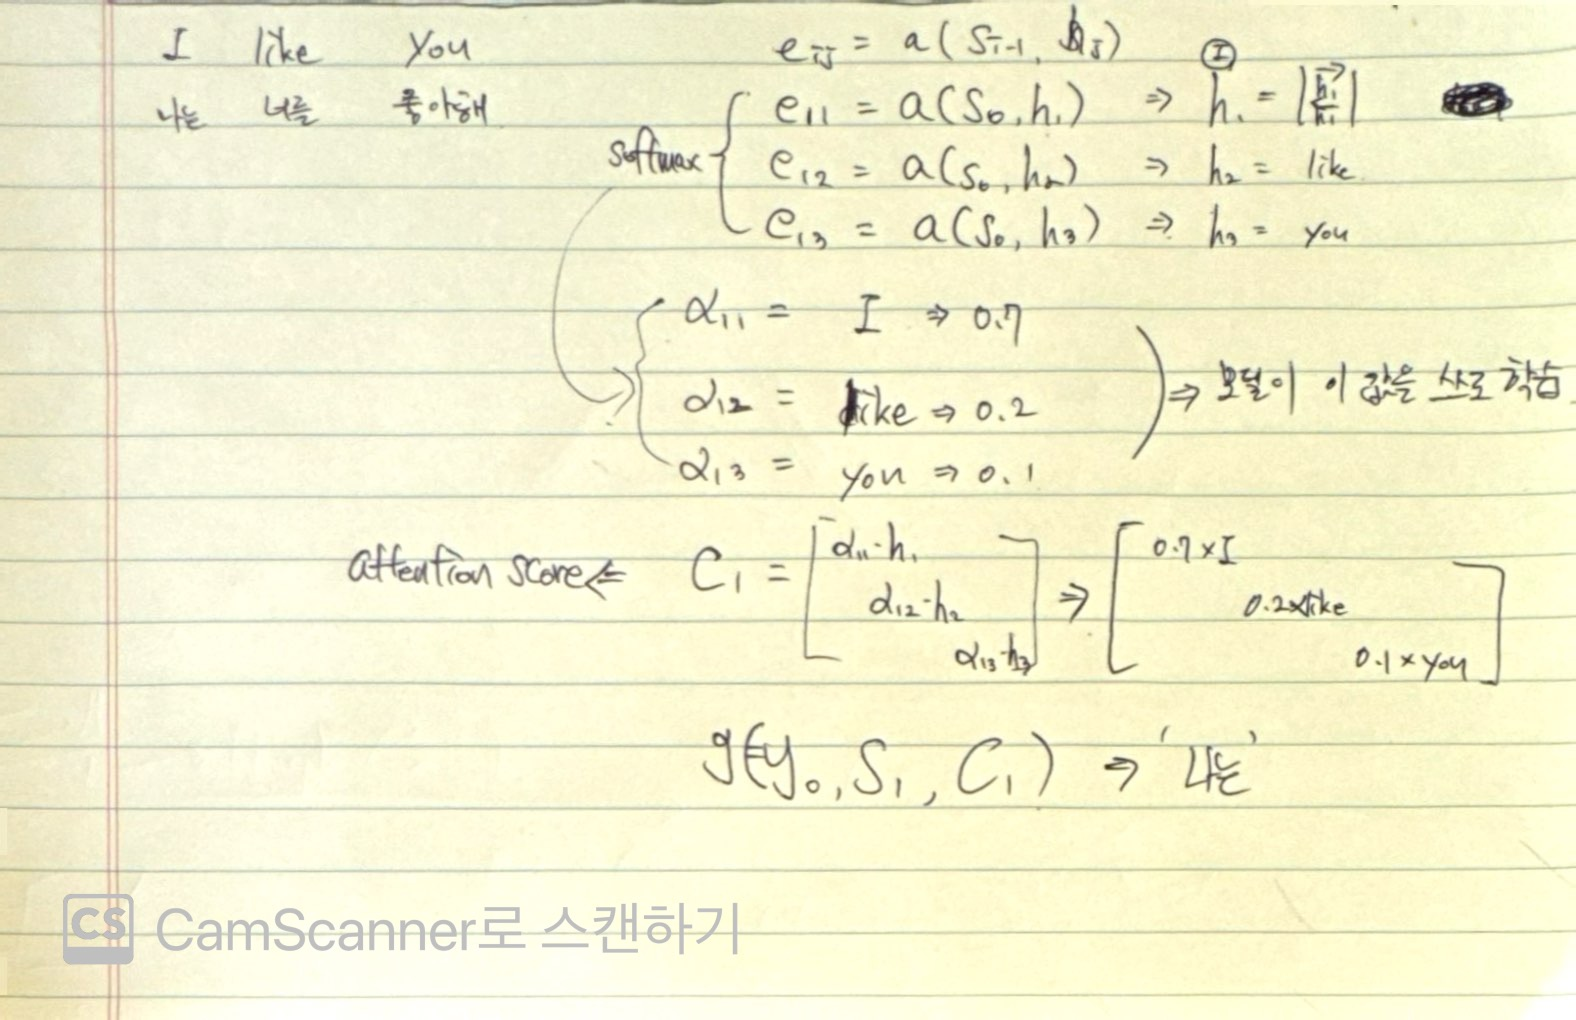 I like you
나는 너를 좋아해
e_ij = a(S_i-1, h_j)
Ⓘ
softmax
e₁₁ = a(S₀, h₁) ⇒ h₁ = |→h₁ / ←h₁|
e₁₂ = a(S₀, h₂) ⇒ h₂ = like
e₁₃ = a(S₀, h₃) ⇒ h₃ = you
α₁₁ = I ⇒ 0.7
α₁₂ = like ⇒ 0.2
α₁₃ = you ⇒ 0.1
⇒ 모델이 이 값을 스로 학습
attention score ⇐ C₁ = [α₁₁·h₁ α₁₂·h₂ α₁₃·h₃] ⇒ [0.7×I 0.2×like 0.1×you]
g(y₀, S₁, C₁) ⇒ '나는'
CS CamScanner로 스캔하기